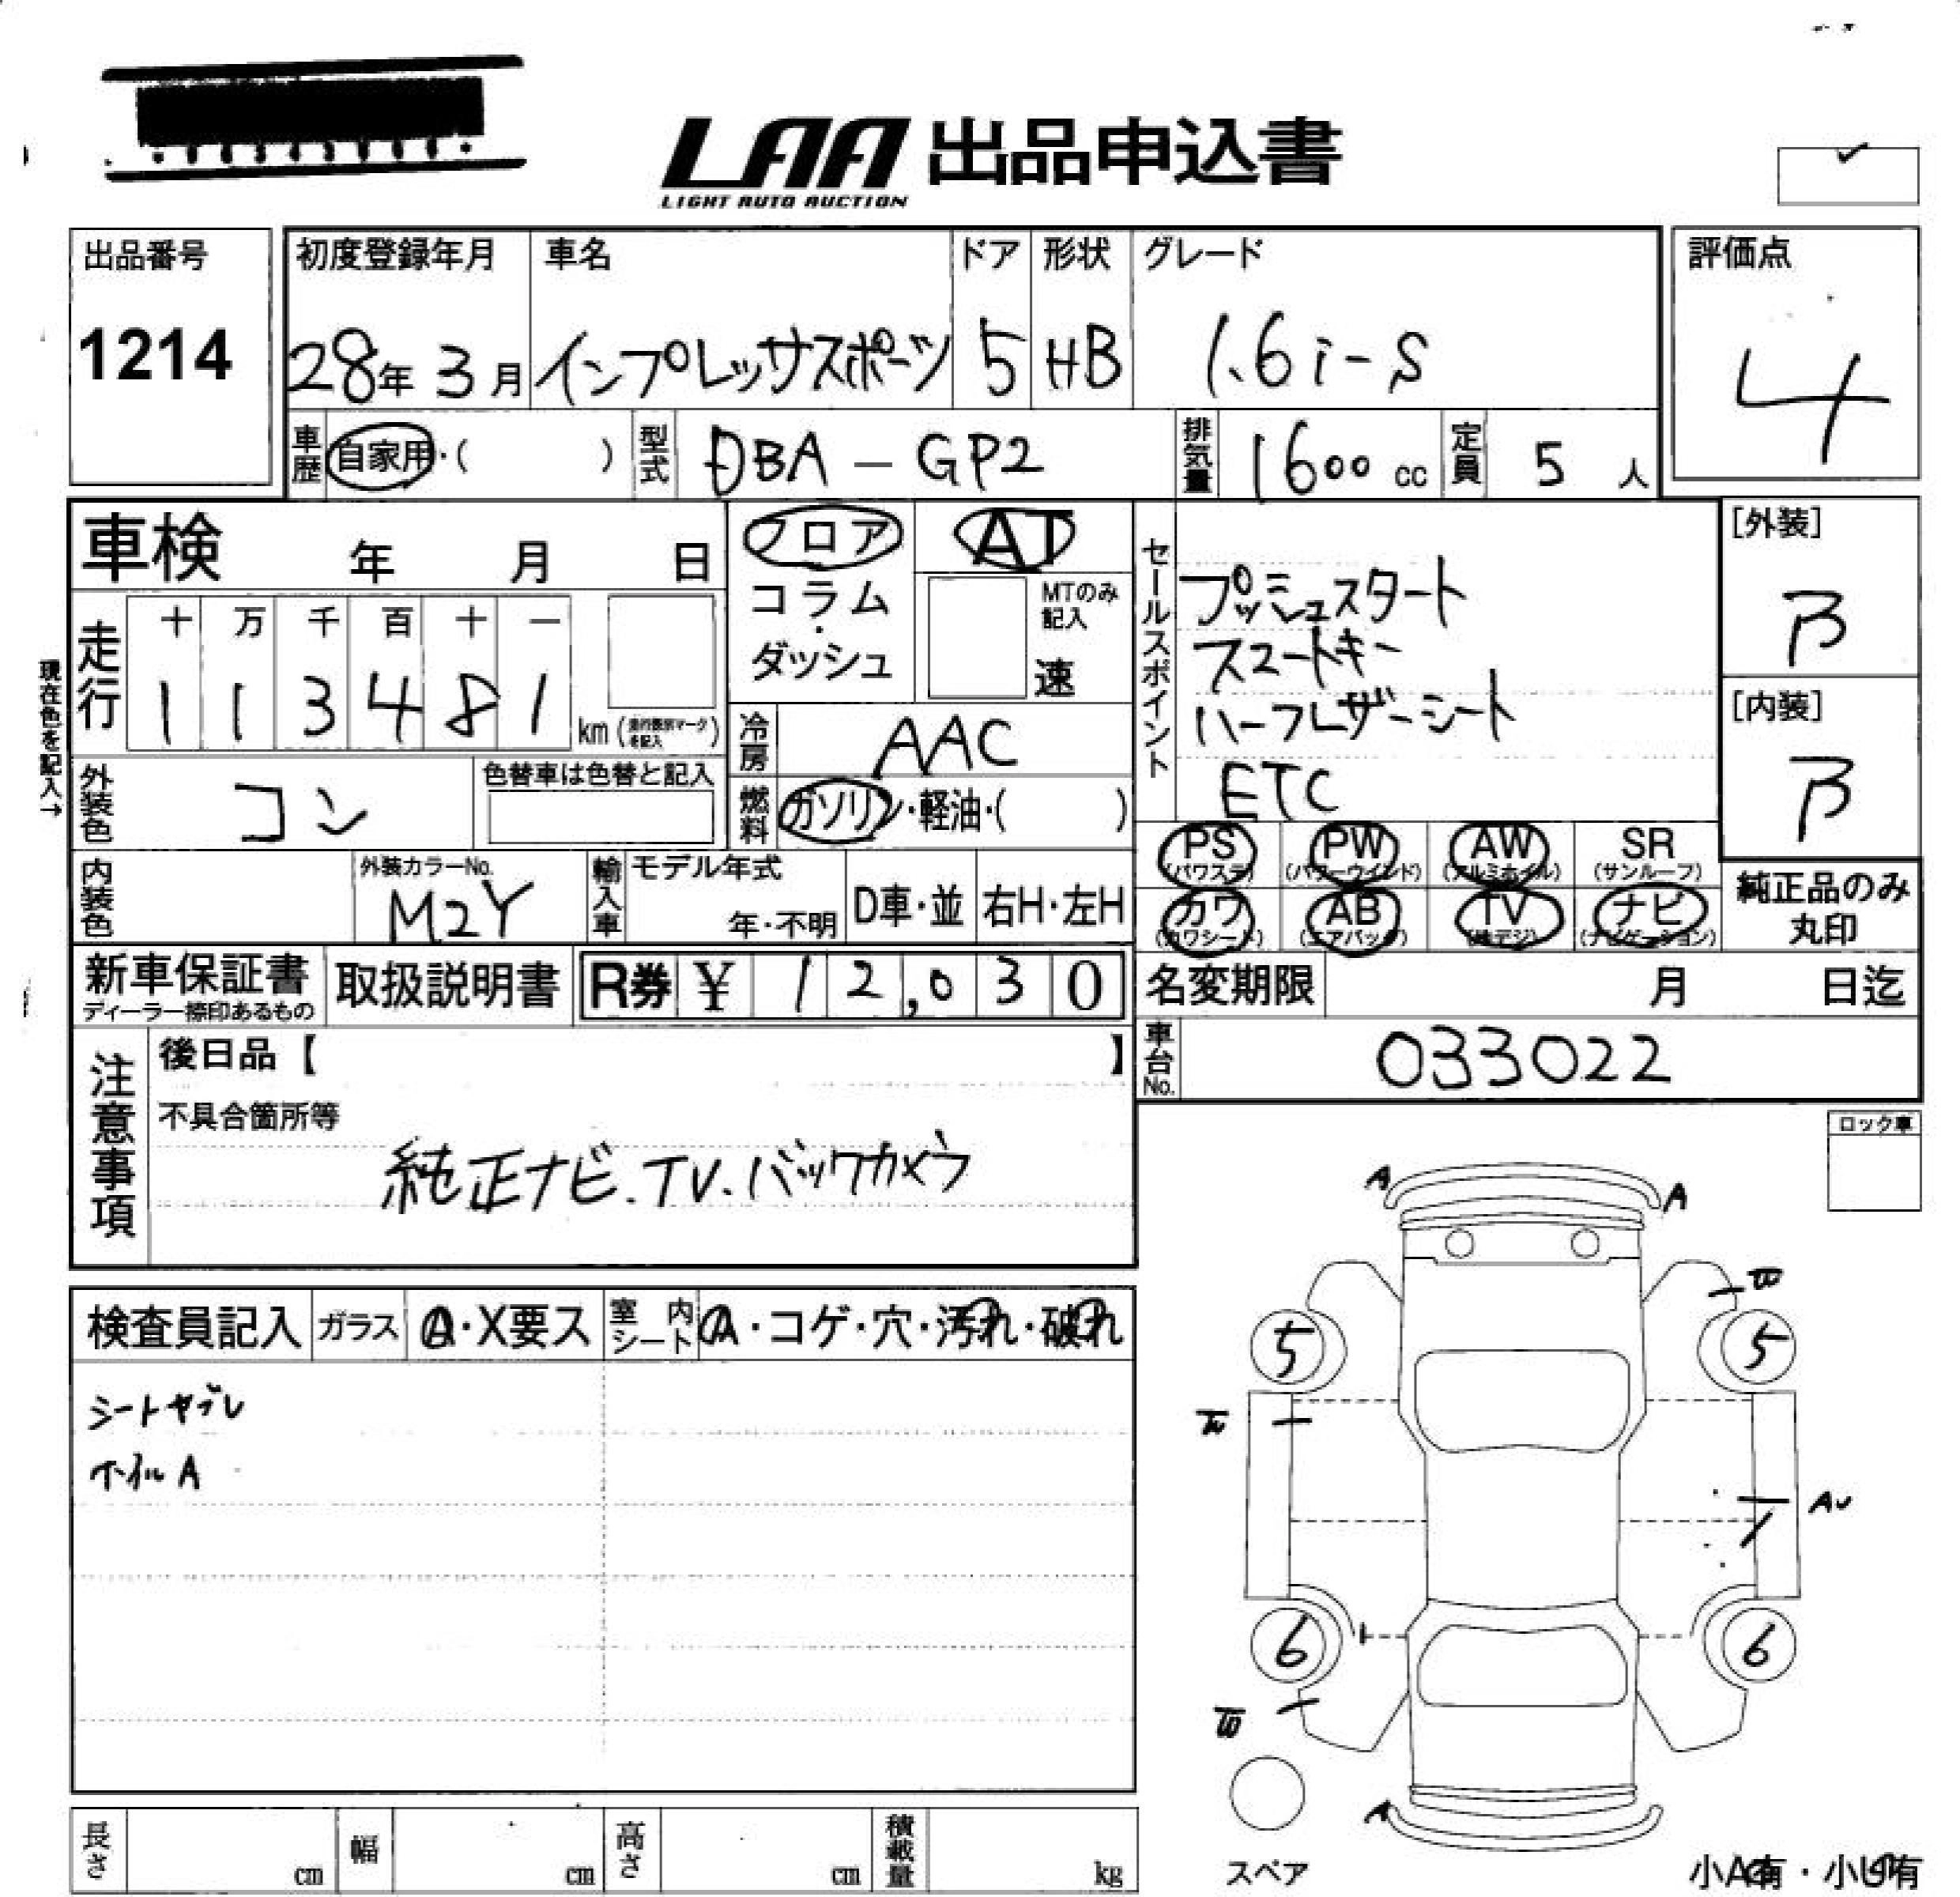 LAA 出品申込書
LIGHT AUTO AUCTION
出品番号
1214
初度登録年月 車名 ドア 形状 グレード
28年 3月 インプレッサスポーツ 5 HB 1.6i-S
評価点
4
車歴 自家用・( ) 型式 DBA-GP2 排気量 1600 cc 定員 5 人
車検 年 月 日
走行 十 万 千 百 十 一
1 1 3 4 8 1 km (走行表示マークを記入)
現在色を記入→
外装色 コン 色替車は色替と記入
内装色 外装カラーNo. M2Y
輸入車 モデル年式 年・不明 D車・並 右H・左H
フロア
コラム
・
ダッシュ
AT
MTのみ記入
速
冷房 AAC
燃料 ガソリン・軽油・( )
セールスポイント
プッシュスタート
スマートキー
ハーフレザーシート
ETC
[外装]
B
[内装]
B
PS (パワステ) PW (パワーウインド) AW (アルミホイル) SR (サンルーフ)
カワ (カワシート) AB (エアバック) TV (地デジ) ナビ (ナビゲーション)
純正品のみ
丸印
新車保証書 ディーラー捺印あるもの 取扱説明書 R券 ¥ 12,030
名変期限 月 日迄
車台No. 033022
注意事項
後日品【 】
不具合箇所等
純正ナビ.TV.バックカメラ
ロック車
検査員記入 ガラス A・X要ス 室内シート A・コゲ・穴・汚れ・破れ
シートヤブレ
ホイルA
A A
5 5
AU
6 6
A
スペア
小A有・小U有
長さ cm 幅 cm 高さ cm 積載量 kg